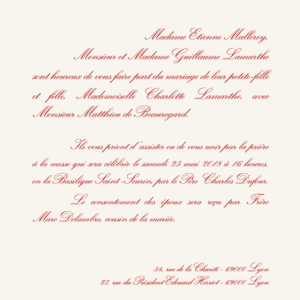 Madame Etienne Mallerey,
Monsieur et Madame Guillaume Lamarthe
sont heureux de vous faire part du mariage de leur petite-fille
et fille, Mademoiselle Charlotte Lamarthe, avec
Monsieur Matthieu de Beauregard.
Ils vous prient d'assister ou de vous unir par la prière
à la messe qui sera célébrée le samedi 25 mai 2018 à 16 heures,
en la Basilique Saint-Seurin, par le Père Charles Dufour.
Le consentement des époux sera reçu par Frère
Marc Delambre, cousin de la mariée.
54, rue de la Charité - 69000 Lyon
27, rue du Président Edouard Herriot - 69000 Lyon